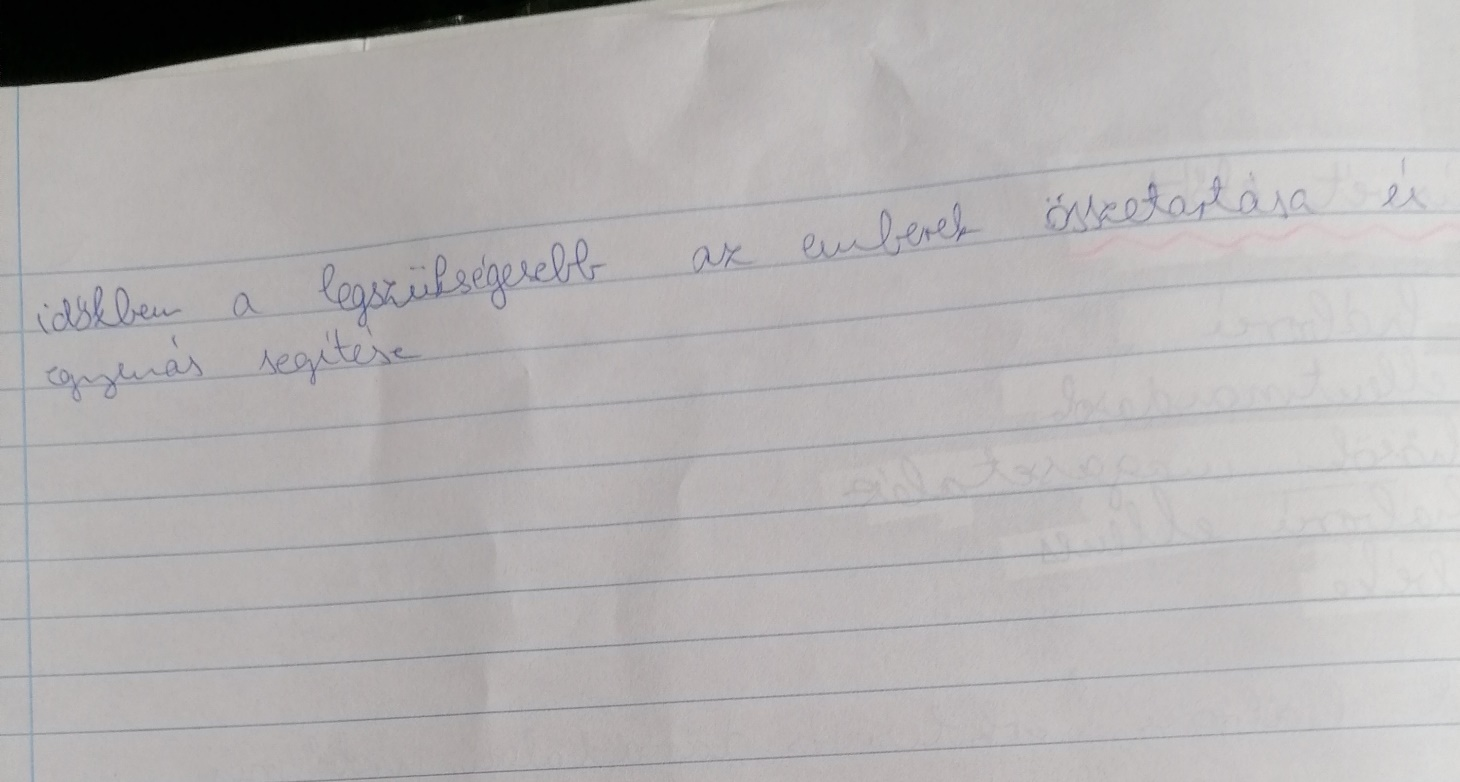 időkben a legszükségesebb az emberek összetartása és
egymás segítése